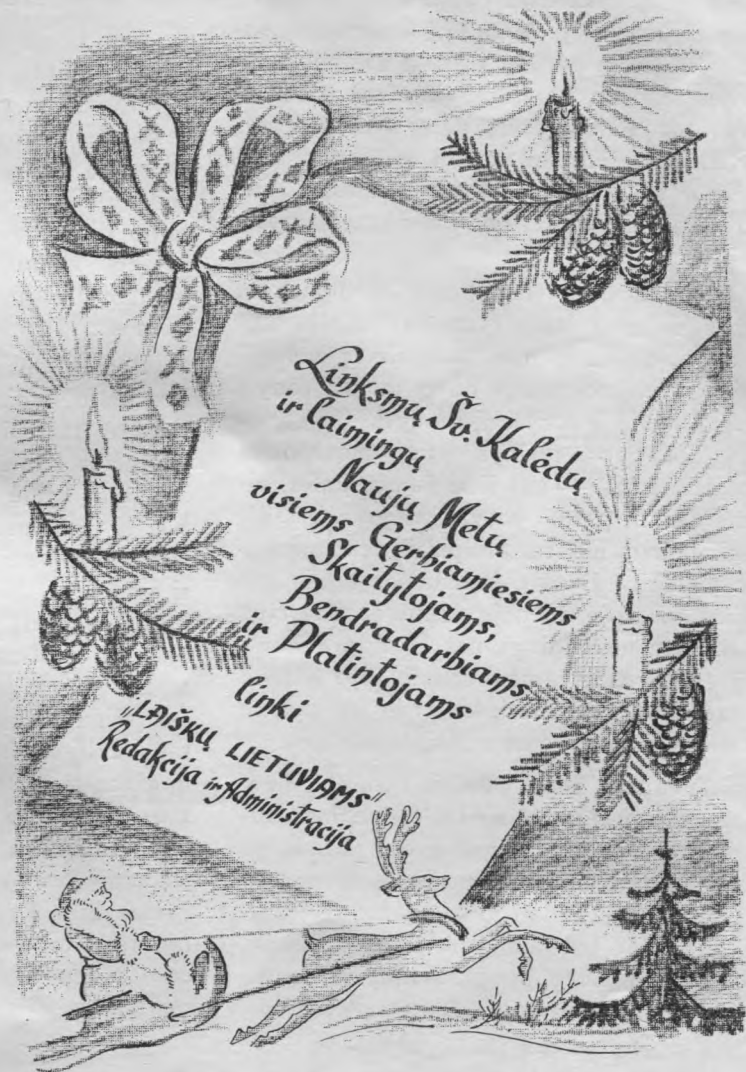 Linksmų Šv. Kalėdų
ir laimingų
Naujų Metų
visiems Gerbiamiesiems
Skaitytojams,
Bendradarbiams
ir Platintojams
linki
„LAIŠKŲ LIETUVIAMS”
Redakcija ir Administracija